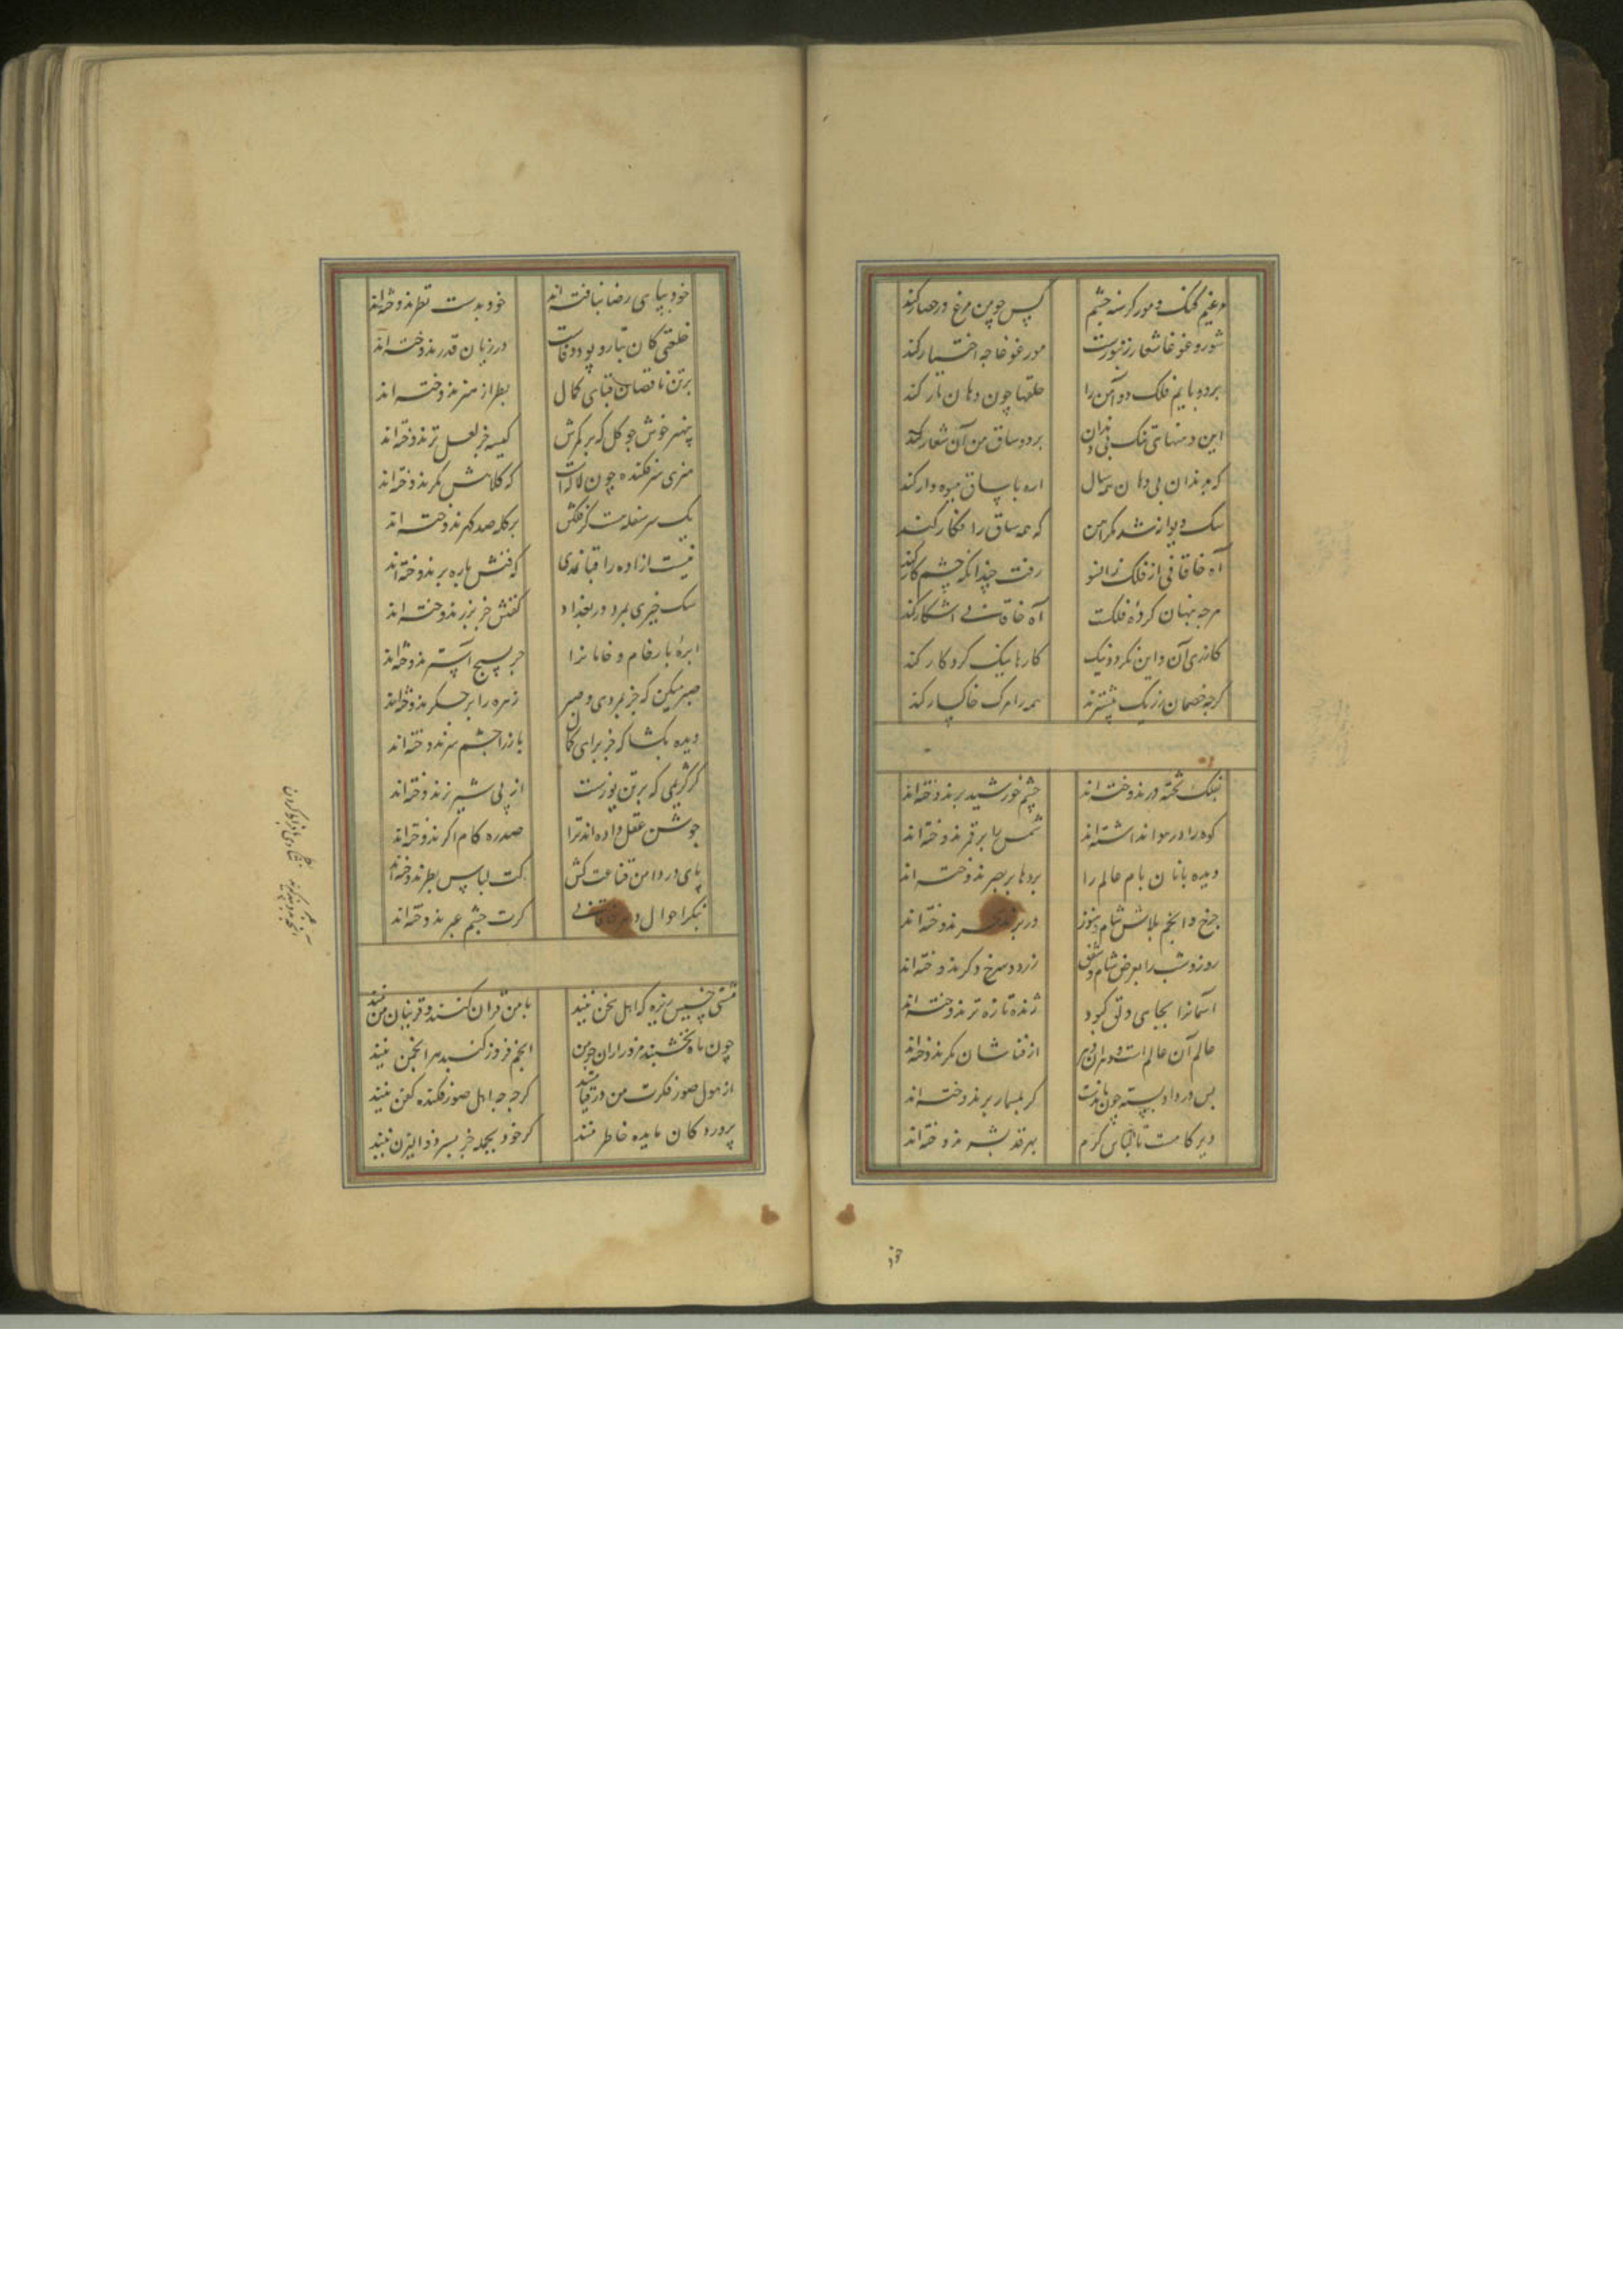 دغنیم کمک و مور کرسنه چشم کپس چو من مرغ در حصار کند
شور و غوغا شعار زنبورست مور غوغا چه اختیار کند
بر دو پایم فلک دو آهن را حلقها چون دهان مار کند
این دهنهای تنک بی دندان بر دو ساق من آن شعار کند
که بدندان بی دهان همه سال اره با ساق میوه دار کند
سک دیوانه شد مکر آهن که همه ساق را فکار کند
آه خاقانی از فلک زانسو رفت چندانکه چشم کار کند
هرچه پنهان کرده فلکست آه خاقانی آشکار کند
کاندی آن و این نکردد نیک کارها نیک کردکار کند
کرچه خصمان ز ریک بیشترند همه را مرک خاکسار کند
بفلک تخته در ندوخته اند چشم خورشید بر ندوخته اند
کوه را در هوا نداشته اند شمس را بر قمر ندوخته اند
دیده بانان بام عالم را پردها بر بصر ندوخته اند
چرخ و انجم پلاس شام هنوز در بر ندوخته اند
روز و شب را بعرض شام و شفق زرد و سرخ دکر ندوخته اند
آسمانرا بجای دلق کبود ژنده تازه تر ندوخته اند
عالم آن عالم است و دهر آن دهر از فناشان مکر ندوخته اند
پس در داد بسته چون ماندست کر بمسمار بر ندوخته اند
دیر کاهست تا لباس کرم بهر قد بشر ندوخته اند
خود
خود بپای رضا نبافته اند خود بدست نظر ندوخته اند
خلعتی کان بتار و پود وفاست درزیان قدر ندوخته اند
بر تن ناقصان قبای کمال بطراز هنر ندوخته اند
بهنر خوش چو کل که بر کمرش کیسه جز لعل تر ندوخته اند
هنری سرفکنده چون لاله است که کلاهش مکر ندوخته اند
یک سر سفله نیست کز فلکش بر کله صد کهر ندوخته اند
نیست آزاده را قبا نمدی که قنش پاره بر ندوخته اند
سک خیبری بمرد در بغداد کفنش جز بزر ندوخته اند
ابره بارخام و خامانرا جز پسیج آستر ندوخته اند
صبر میکن که جز بمردی و صبر زهره را بر جکر ندوخته اند
دیده بکشا که جز برای کمال باز را چشم سر ندوخته اند
کر کژیی که بر تن یوزست از پی شیر نر ندوخته اند
جوشن عقل داده اند ترا صدره کام اکر ندوخته اند
پای در دامن قناعت کش کت لباس بطر ندوخته اند
بنکر احوال دهر خاقانی کرت چشم عبر ندوخته اند
مشتی خسیس ریزه که اهل سخن نیند با من قران کنند و قرینان من نیند
چون ماه نخشبند مزور از آن چو من انجم فروز کنبد هر انجمن نیند
از هول صور فکرت من در قیامتند کرچه چه اهل صور فکنده کفن نیند
پروردکان مایده خاطر منند کر خود بجمله جز پسر ذوالیزن نیند